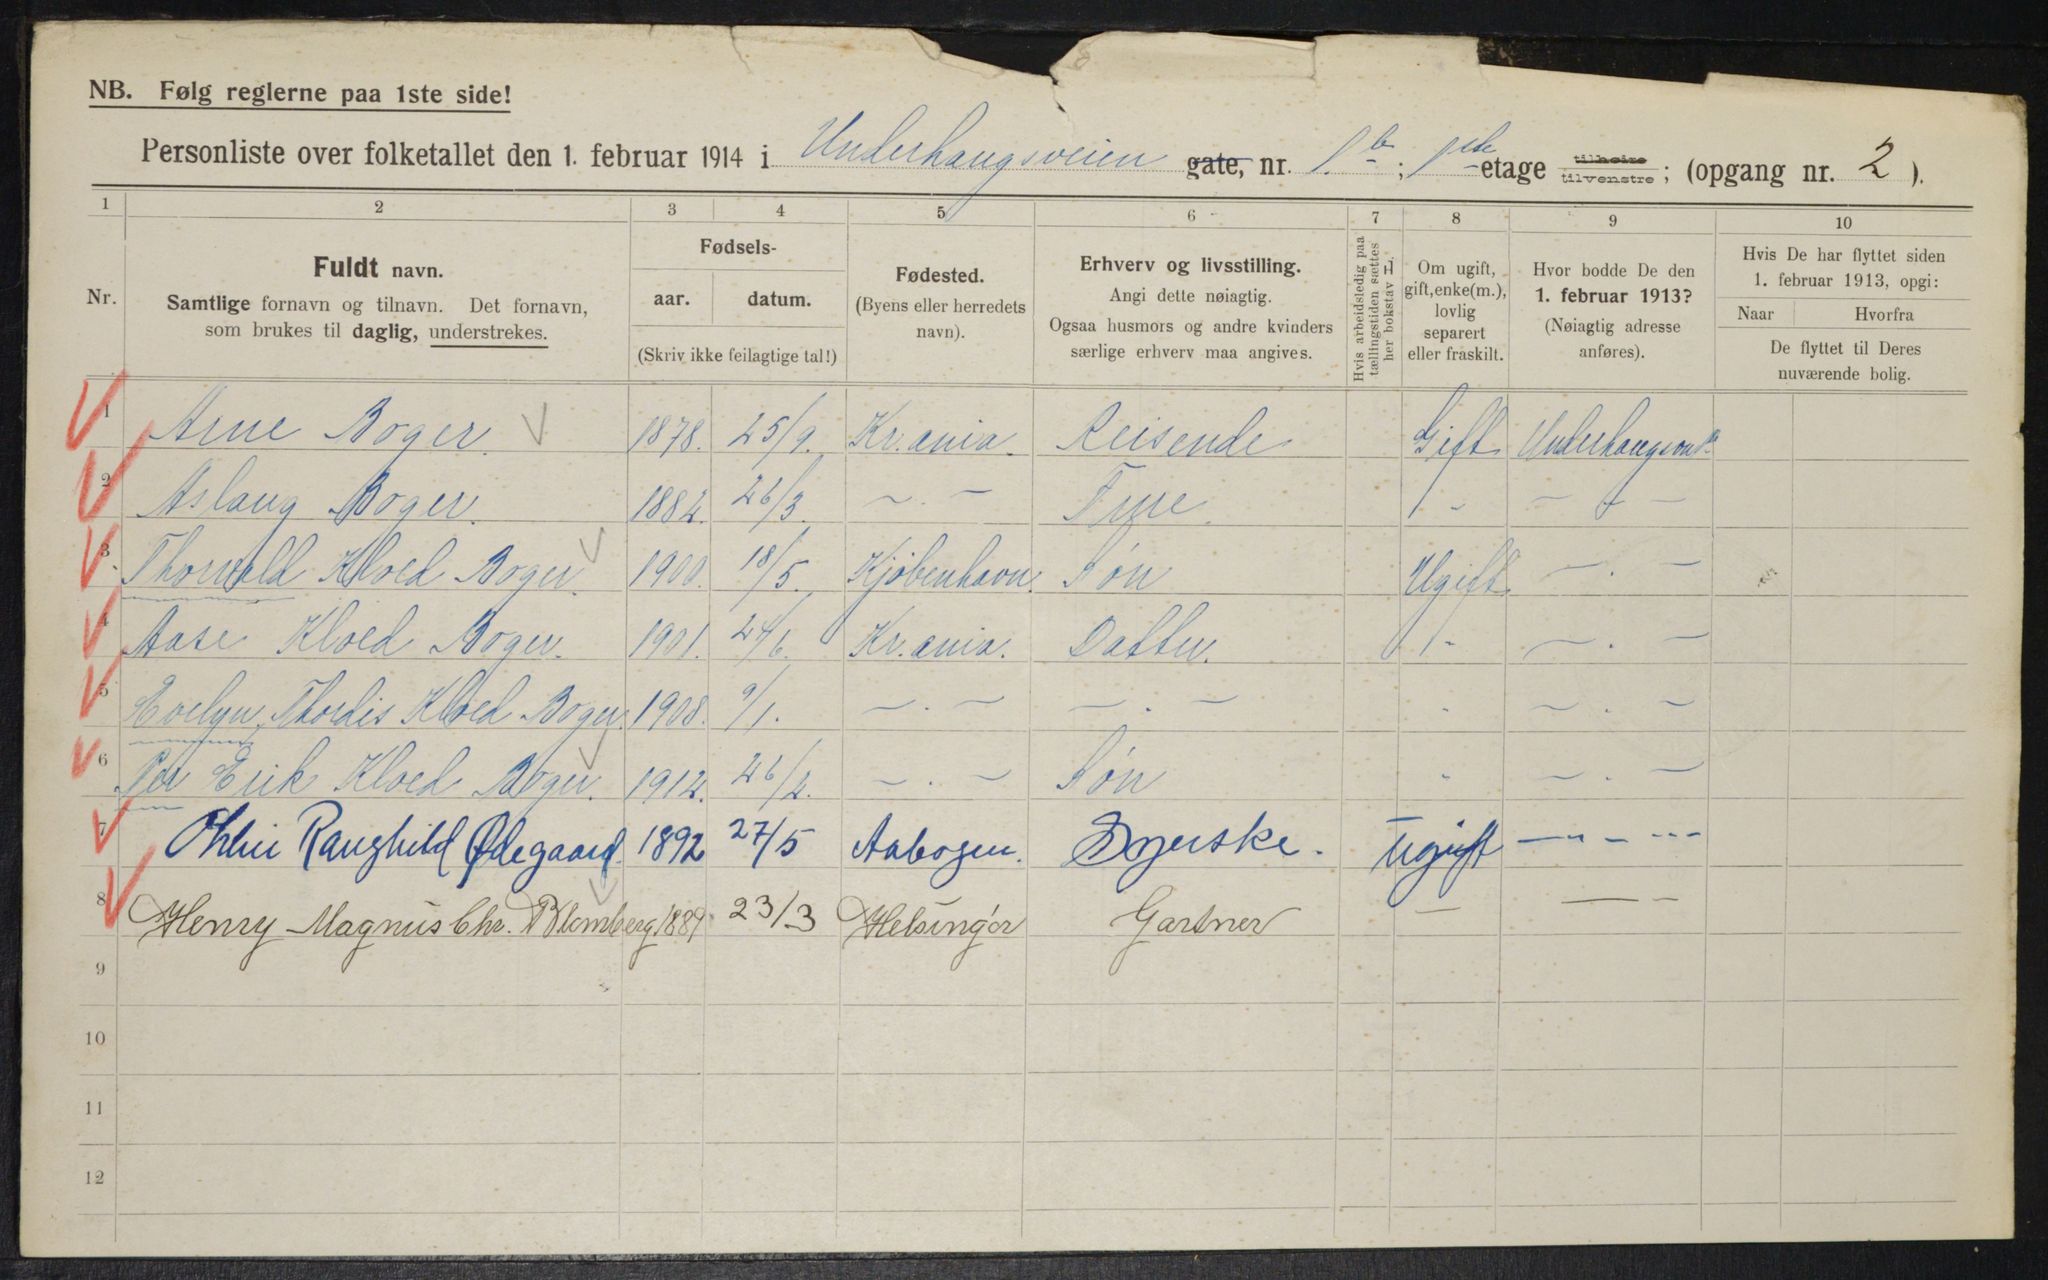 NB. Følg reglerne paa 1ste side!
Personliste over folketallet den 1. februar 1914 i Underhaugsveien gate, nr. 1b; 1ste etage tilhøire tilvenstre; (opgang nr. 2).
1 2 3 4 5 6 7 8 9 10
Nr.
Fuldt navn.
Samtlige fornavn og tilnavn. Det fornavn,
som brukes til daglig, understrekes.
Fødsels-
aar. datum.
(Skriv ikke feilagtige tal!)
Fødested.
(Byens eller herredets
navn).
Erhverv og livsstilling.
Angi dette nøiagtig.
Ogsaa husmors og andre kvinders
særlige erhverv maa angives.
Hvis arbeidsledig paa
tællingstiden sættes
her bokstav L.
Om ugift,
gift, enke(m.),
lovlig
separert
eller fraskilt.
Hvor bodde De den
1. februar 1913?
(Nøiagtig adresse
anføres).
Hvis De har flyttet siden
1. februar 1913, opgi:
Naar Hvorfra
De flyttet til Deres
nuværende bolig.
1 Arne Boger. 1878. 25/9. Kr.ania. Reisende Gift
2 Aslaug Boger. 1882. 26/3. — . — Frue. " — " —
3 Thorvald Kloed Boger. 1900. 18/5. Kjöbenhavn. Sön Ugift — . —
4 Aase Kloed Boger. 1901. 24/6. Kr.ania. Datter. " — . —
5 Evelyn Thordis Kloed Boger. 1908. 9/1. — . — — . — " — . —
6 Per Erik Kloed Boger. 1912. 26/2. — . — Sön " — . —
7 Ragnhild Ødegaard. 1892 27/5 Aabogen. Ugift — " — " —
8 Henry Magnus Chr. Blomberg. 1889 23/3 Helsingör Gartner — — —
9
10
11
12